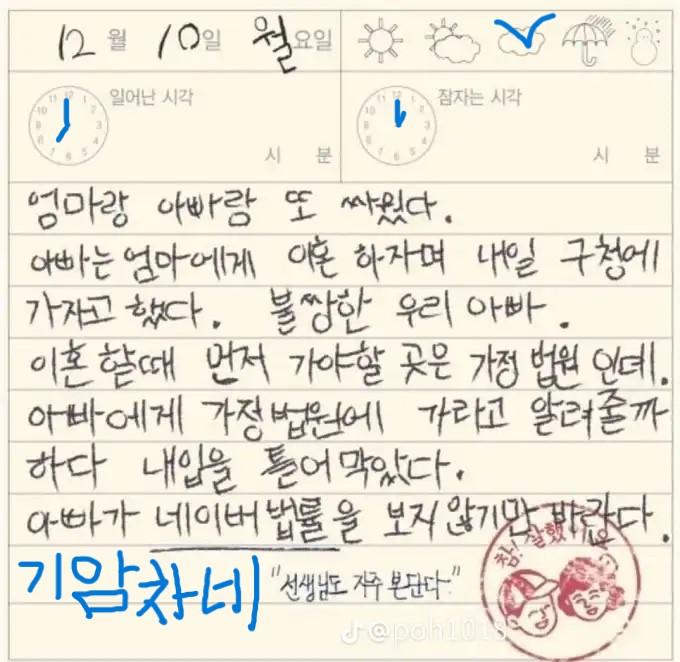 12월 10일 월요일
일어난 시각 잠자는 시각
시 분 시 분
엄마랑 아빠랑 또 싸웠다.
아빠는 엄마에게 이혼 하자며 내일 구청에
가자고 했다. 불쌍한 우리 아빠.
이혼 할때 먼저 가야할 곳은 가정 법원 인데.
아빠에게 가정법원에 가라고 알려줄까
하다 내입을 틀어막았다.
아빠가 네이버 법률을 보지않기만 바란다.
참! 잘했어요
기암차네 "선생님도 자주 본단다."
@poh1018